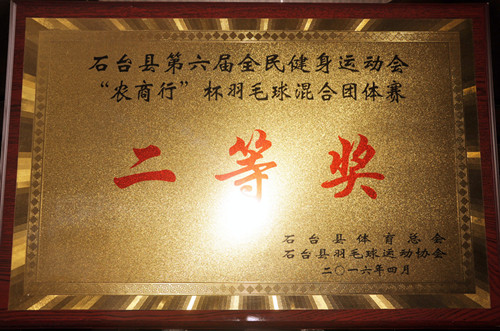 石台县第六届全民健身运动会
“农商行”杯羽毛球混合团体赛
二等奖
石台县体育总会
石台县羽毛球运动协会
二〇一六年四月